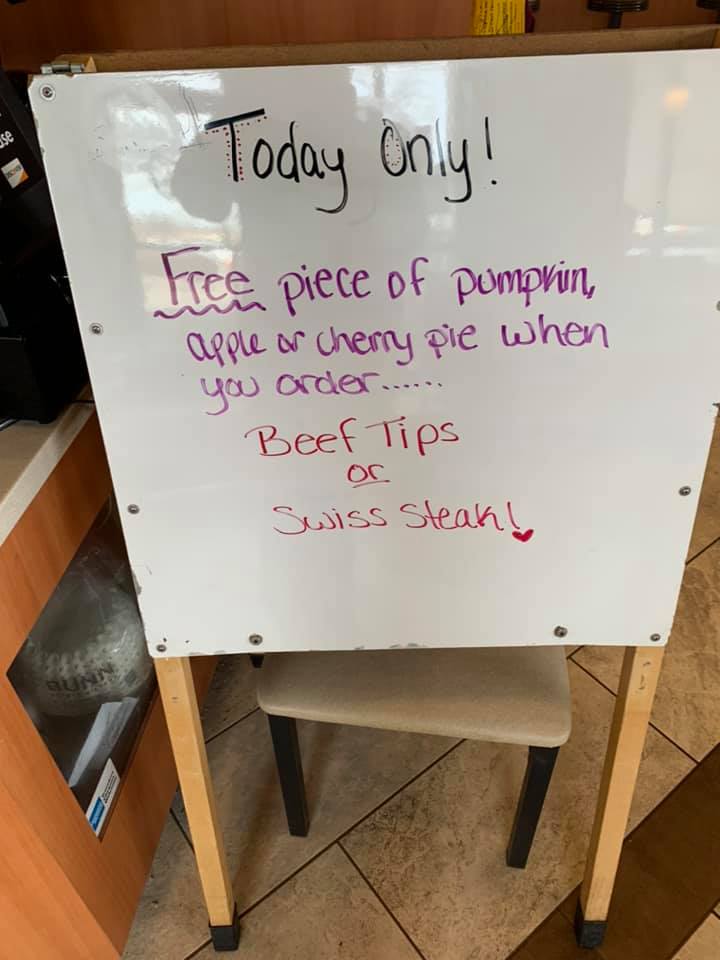 Today Only!
Free piece of pumpkin,
apple or cherry pie when
you order......
Beef Tips
or
Swiss Steak!
BUNN